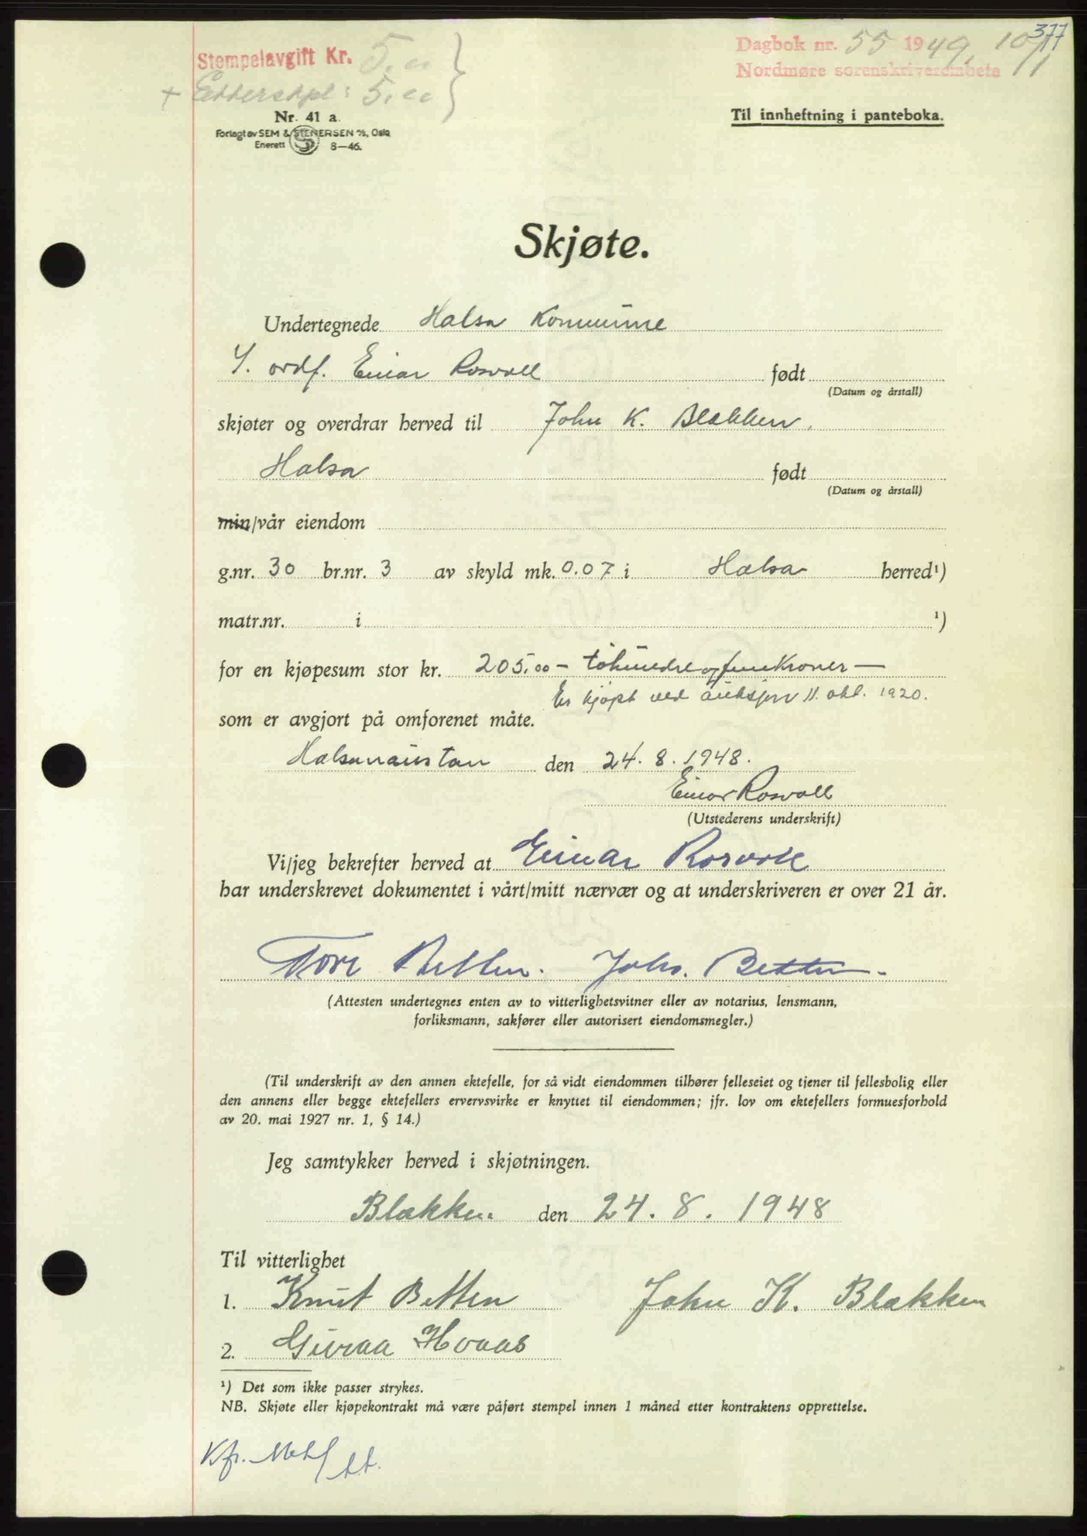 377
Stempelavgift Kr. 5.00
+ Etterstpl: 5.00
Dagbok nr. 55 1949, 10/1
Nordmøre sorenskriverembete
Nr. 41 a
Forlagt av SEM & STENERSEN A/S, Oslo
Enerett 8—46.
Til innheftning i panteboka.
Skjøte.
Undertegnede Halsa Kommune
v. ordf. Einar Rosvoll født
(Datum og årstall)
skjøter og overdrar herved til John K. Blakken,
Halsa født
(Datum og årstall)
min/vår eiendom
g.nr. 30 br.nr. 3 av skyld mk. 0.07 i Halsa herred¹)
matr.nr. i ¹)
for en kjøpesum stor kr. 205,00 — tohundreogfemkroner —
Er kjøpt ved auksjon 11. okt. 1920.
som er avgjort på omforenet måte.
Halsanaustan den 24. 8. 1948.
Einar Rosvoll
(Utstederens underskrift)
Vi/jeg bekrefter herved at Einar Rosvoll
har underskrevet dokumentet i vårt/mitt nærvær og at underskriveren er over 21 år.
Tore Betten. Johs. Betten.
(Attesten undertegnes enten av to vitterlighetsvitner eller av notarius, lensmann,
forliksmann, sakfører eller autorisert eiendomsmegler.)
(Til underskrift av den annen ektefelle, for så vidt eiendommen tilhører felleseiet og tjener til fellesbolig eller
den annens eller begge ektefellers ervervsvirke er knyttet til eiendommen; jfr. lov om ektefellers formuesforhold
av 20. mai 1927 nr. 1, § 14.)
Jeg samtykker herved i skjøtningen.
Blakken den 24. 8. 1948
Til vitterlighet
1. Knut Betten John K. Blakken
2. Guraa Hovaas
¹) Det som ikke passer strykes.
NB. Skjøte eller kjøpekontrakt må være påført stempel innen 1 måned etter kontraktens opprettelse.